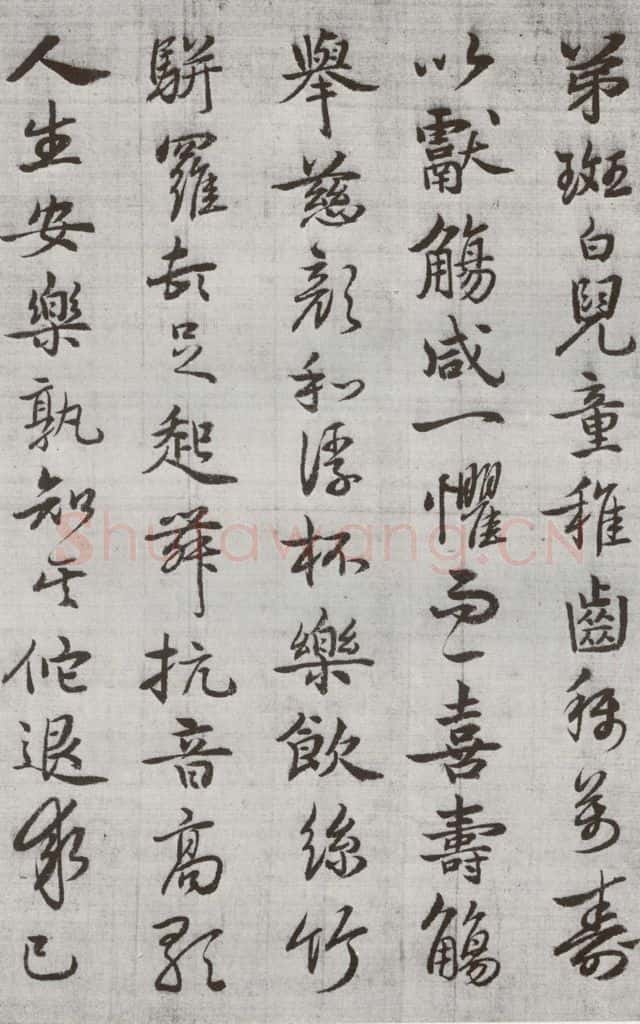 弟斑白兒童稚齒稱萬壽
以獻觴咸一懼而一喜壽觴
舉慈顏和浮杯樂飲絲竹
駢羅頓足起舞抗音高歌
人生安樂孰知其佗退求己
Shufawang.CN